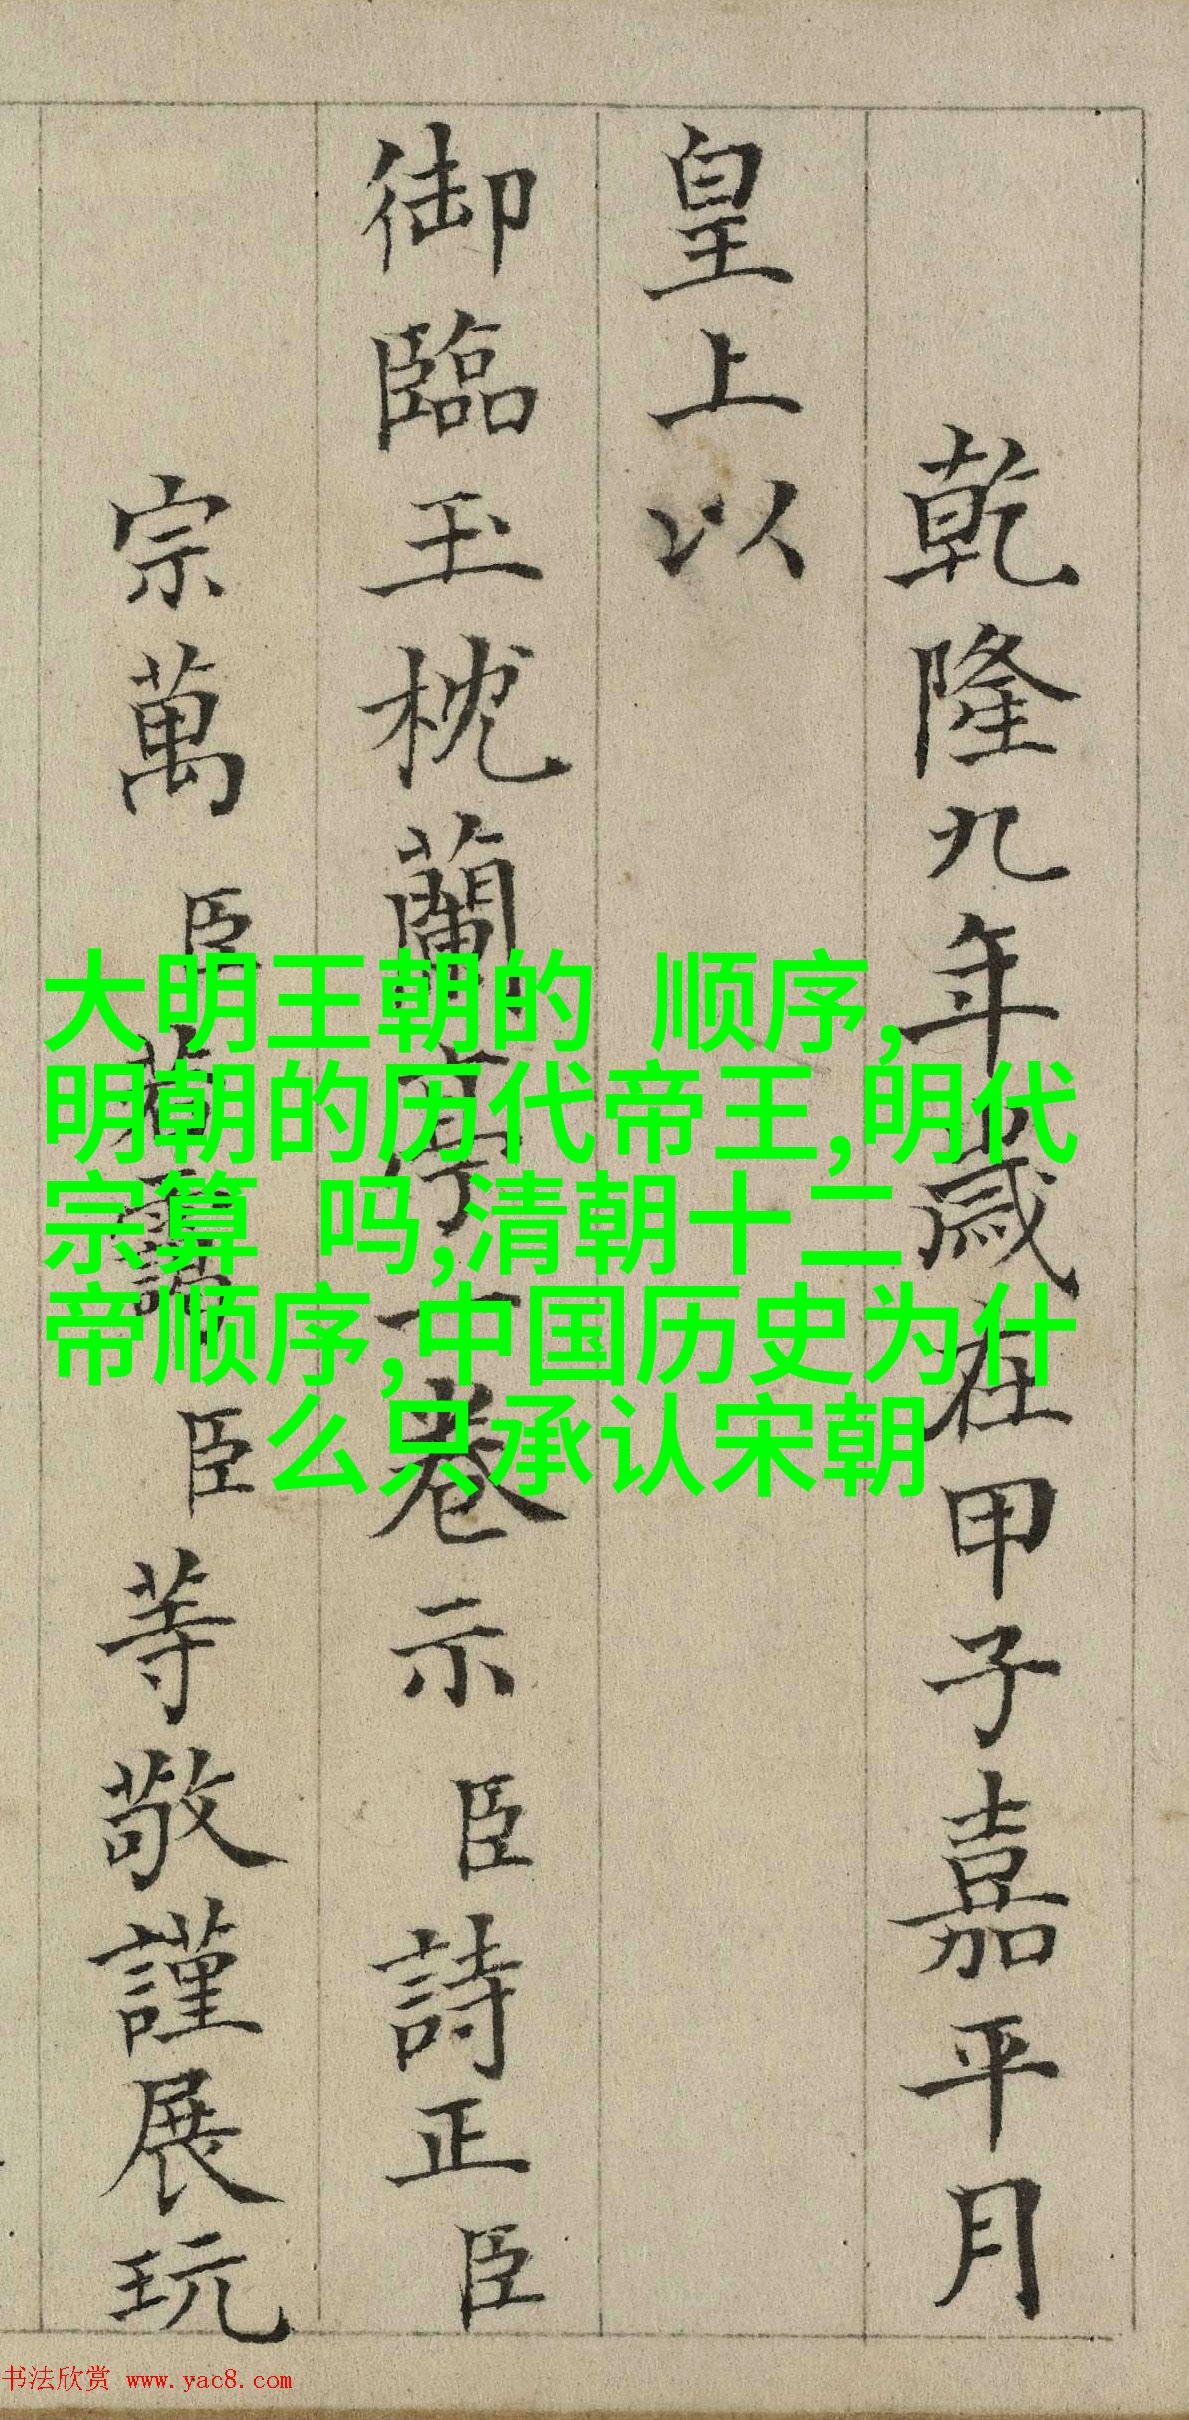 乾隆九年歲在甲子嘉平月
皇上以
御臨玉枕蘭亭一卷示臣詩正臣
宗萬臣若靄臣等敬謹展玩
大明王朝的 顺序,
明朝的历代帝王,明代
宗算 吗,清朝十二
帝顺序,中国历史为什
么只承认宋朝
书法欣赏 www.yac8.com